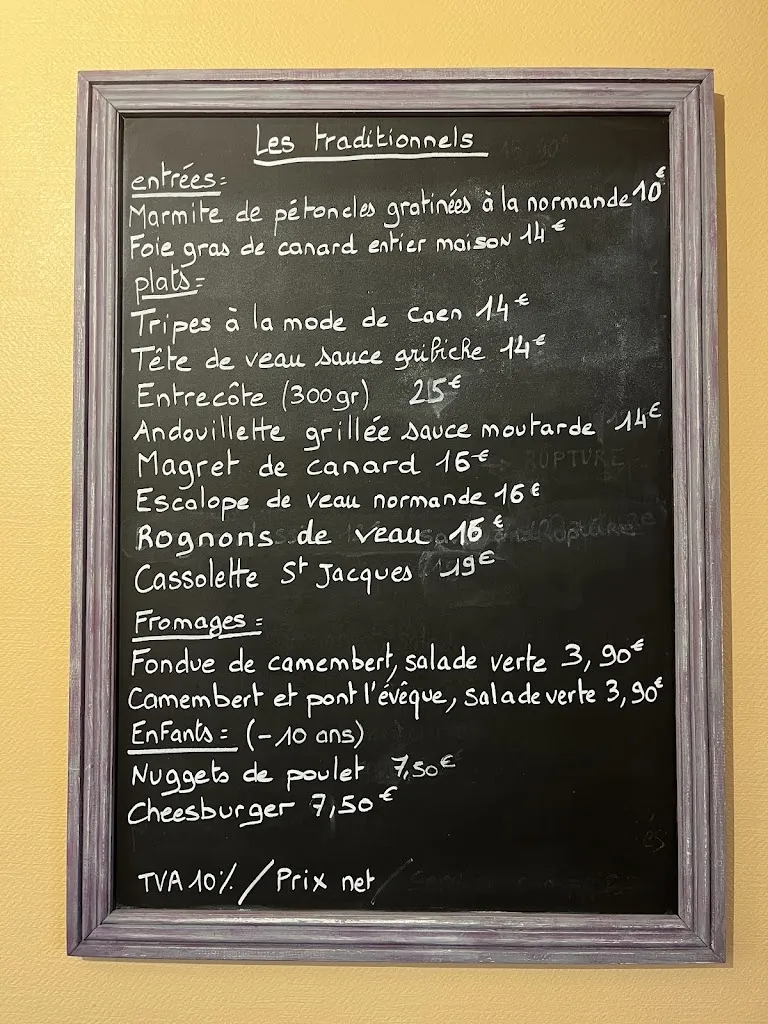 Les traditionnels
entrées:
Marmite de pétoncles gratinées à la normande 10€
Foie gras de canard entier maison 14€
plats:
Tripes à la mode de Caen 14€
Tête de veau sauce gribiche 14€
Entrecôte (300gr) 25€
Andouillette grillée sauce moutarde 14€
Magret de canard 16€ RUPTURE
Escalope de veau normande 16€
Rognons de veau 16€
Cassolette St Jacques 19€
Fromages:
Fondue de camembert, salade verte 3,90€
Camembert et pont l'évêque, salade verte 3,90€
Enfants: (-10 ans)
Nuggets de poulet 7,50€
Cheesburger 7,50€
TVA 10% / Prix net /